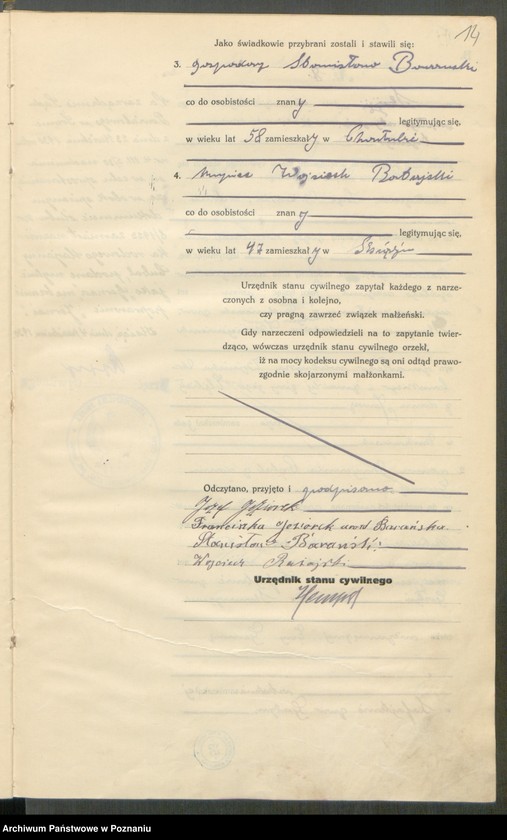 14
Jako świadkowie przybrani zostali i stawili się:
3. gospodarz Stanisław
co do osobistości znany
legitymując się,
w wieku lat 58 zamieszkały w
4. Wojciech
co do osobistości znany
legitymując się,
w wieku lat 47 zamieszkały w
Urzędnik stanu cywilnego zapytał każdego z narze-
czonych z osobna i kolejno,
czy pragną zawrzeć związek małżeński.
Gdy narzeczeni odpowiedzieli na to zapytanie twier-
dząco, wówczas urzędnik stanu cywilnego orzekł,
iż na mocy kodeksu cywilnego są oni odtąd prawo-
zgodnie skojarzonymi małżonkami.
Odczytano, przyjęto i podpisano
Józef Jeziorek
Franciszka Jeziorek urod. Barańska
Stanisław Barański
Wojciech Ratajski
Urzędnik stanu cywilnego
Archiwum Państwowe w Poznaniu